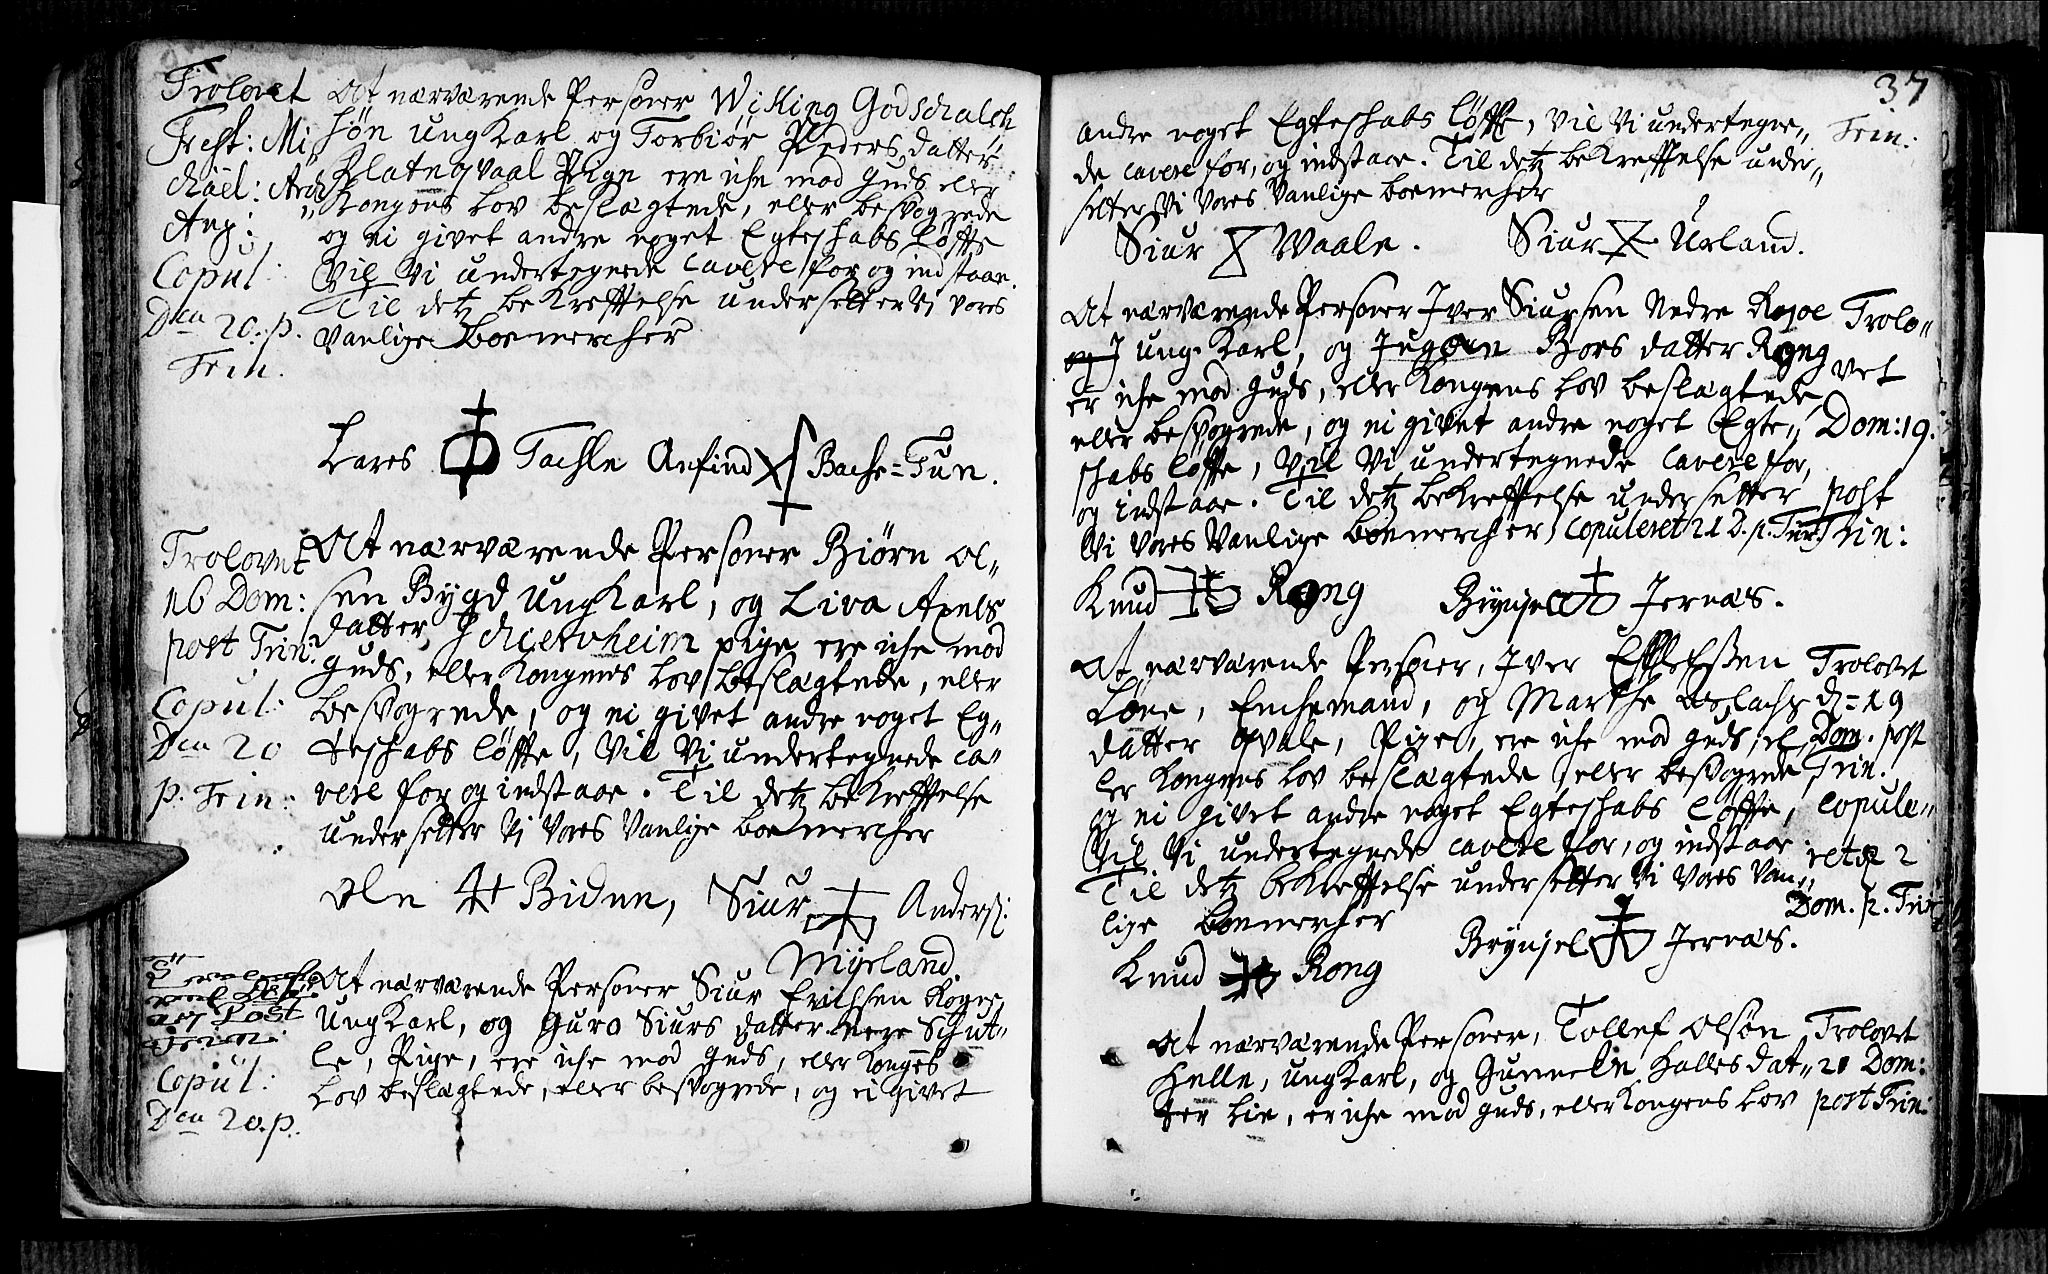 Trolovet
Fest: Mi
chäel: Arch
Ang:
Copul:
Den 20. p.
Trin.
At nærværende Persohner Wiking Godschalch
søn ung Karl og Torbiør Peders datter
Platnqvaal Pige ere iche mod Guds eller
Kongens Lov beslægtede, eller besvogrede
og ei givet andre noget Egteskabs Løffte
Vil Vi undertegnede Cavere for og indstaae.
Til detz bekrefftelse undersetter Vi vores
Vanlige boemercher
Lars Tachle Anfind Bache=Tun.
Trolovet
16 Dom:
post Trin:
Copul:
Den 20
p. Trin:
At nærværende Persohner Biørn Ol„
sen Bygd Ung Karl, og Liva Axels
datter Schierveheim pige ere iche mod
Guds, eller Kongens Lov beslægtede, eller
besvogrede, og ei givet andre noget Eg„
teskabs Løffte, Vil Vi undertegnede Ca„
vere for og indstaae. Til detz bekrefftelse
undersetter Vi Vores Vanlige boemercher
Ole Bidne, Siur Anders:
Myeland.
17 Post
Trin:
Copul:
Den 20. p.
At nærværende Persohner Siur Erichsen
Ung Karl, og Guro Siurs datter Nere Schut„
le, Pige, ere iche mod Guds, eller Konges
Lov beslægtede, eller besvogrede, og ei givet
37
Trin:
andre noget Egteschabs Løffte, Vil Vi undertegne„
de Cavere for, og indstaae. Til detz bekrefftelse under„
setter Vi Vores Vanlige boemercher
Siur Waale. Siur Urland.
At nærværende Persohner Iver Siursen Nedre
ung Karl, og Ingeen Bors datter Rong
er iche mod Guds, eller Kongens Lov beslægtede,
eller besvogrede, og ei givet andre noget Egte„
schabs Løffte, Vil Vi undertegnede Cavere for,
og indstaae. Til detz bekrefftelse undersetter
Vi Vores Vanlige boemercher, Copuleret 21 D. p. Trin.
Trolo„
vet
Dom: 19.
post
Trin:
Knud Rong Brynjel Jernæs.
At nærværende Persohner, Iver
Løne, Enchemand, og Marthe Aslachs
datter Qvale, Pige, ere iche mod Guds, el„
ler Kongens Lov beslægtede, eller besvogrede,
og ei givet andre noget Egteschabs Løffte,
Vil Vi undertegnede Cavere for, og indstaae
Til detz bekrefftelse undersetter Vi Vores Van„
lige boemercher
Trolovet
d: 19
Dom. post
Trin.
Copule„
ret
Dom. p. Trin
Knud Rong Brynjel Jernæs.
At nærværende Persohner, Tollef Olsøn
Helle, ung Karl, og Gunnele Halles dat„
ter Lie, er iche mod Guds, eller Kongens Lov
Trolovet
21 Dom:
post Trin: